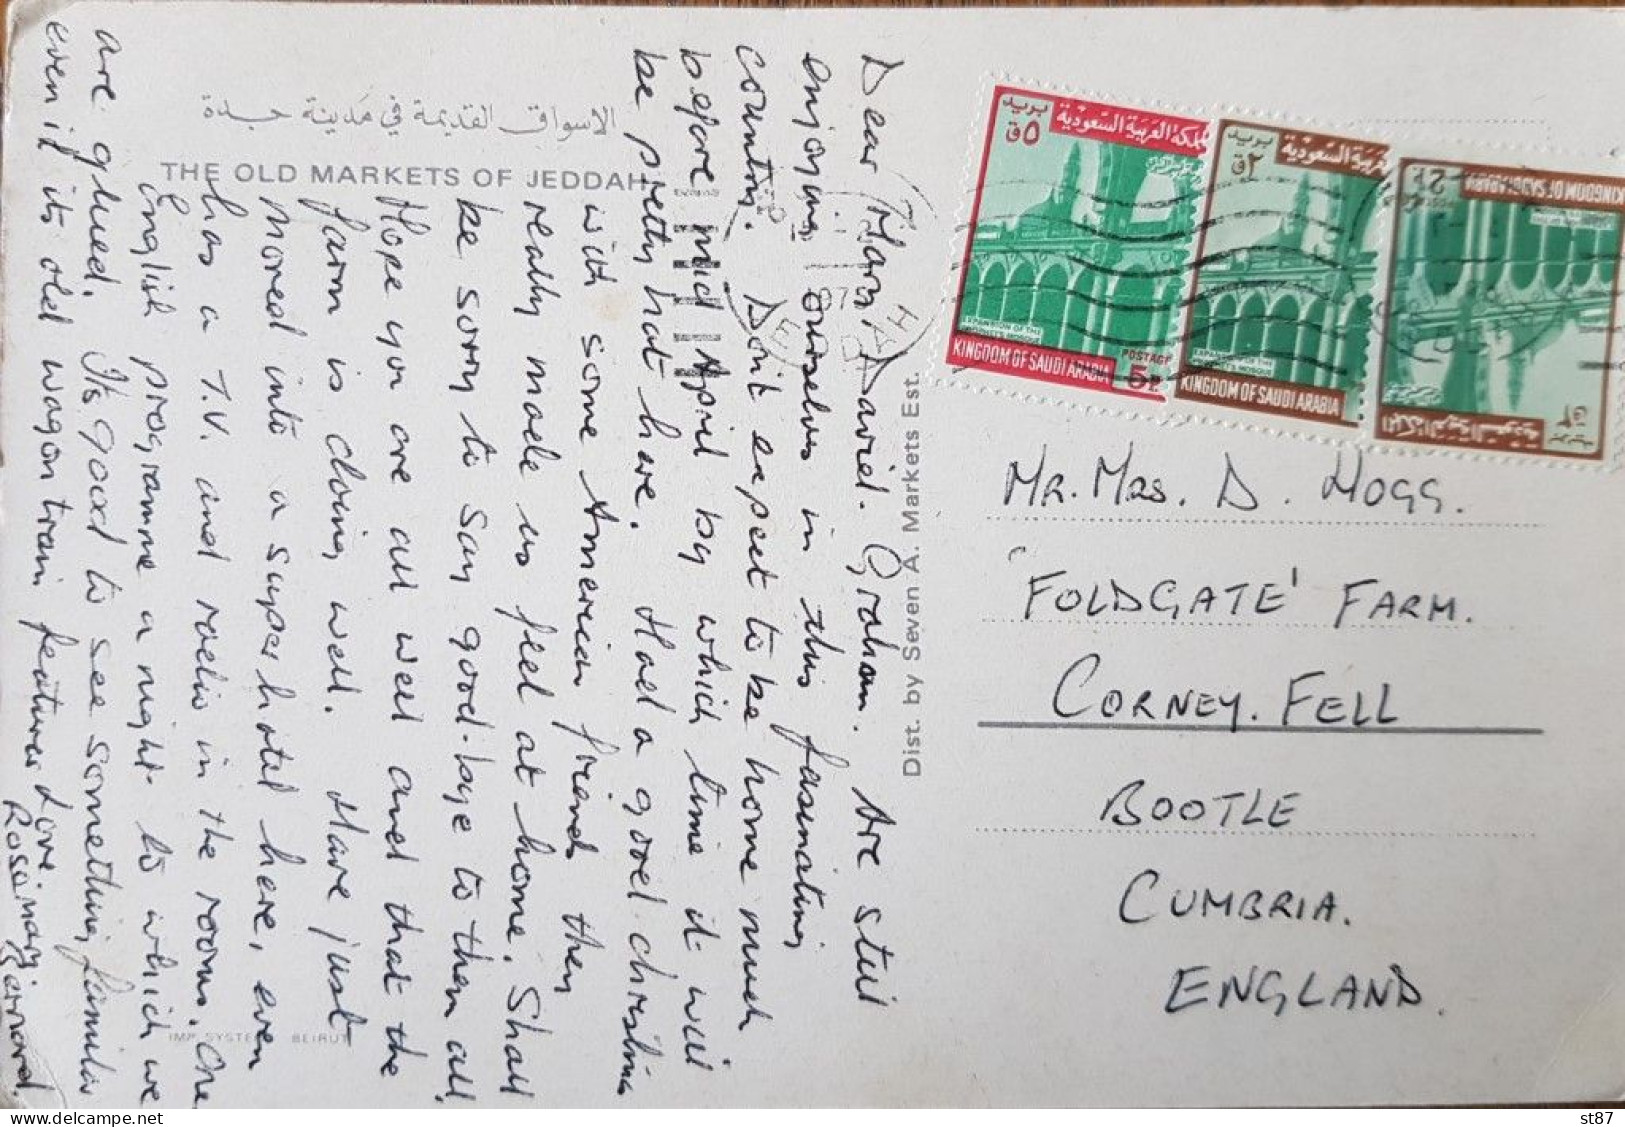 الاسواق القديمة في مدينة جدة
THE OLD MARKETS OF JEDDAH
Dear Mary, David, Graham. Are still
enjoying ourselves in this fasinating
country. Don't expect to be home much
before mid April by which time it will
be pretty hot here. Had a good christmas
with some American friends they
really made us feel at home. Shall
be sorry to say good-bye to them all.
Hope you are all well and that the
farm is doing well. Have just
moved into a super hotel here, even
has a T.V. and radio in the rooms. One
English programme a night to which we
are glued. Its good to see something familiar
even if its old wagon train features
Love
Rosemary
Dist. by Seven A. Markets Est.
IMP. SYSTE BEIRUT
بريد
٥ ق
المملكة العربية السعودية
EXPANSION OF THE
PROPHET'S MOSQUE
POSTAGE
KINGDOM OF SAUDI ARABIA 5P
بريد
٢ ق
العربية السعودية
EXPANSION OF THE
PROPHET'S MOSQUE
KINGDOM OF SAUDI ARABIA
KINGDOM OF SAUDI ARABIA
2P
المملكة العربية السعودية
بريد
٢ ق
MR. MRS. D. HOGG.
'FOLDGATE' FARM.
CORNEY. FELL
BOOTLE
CUMBRIA.
ENGLAND.
st87